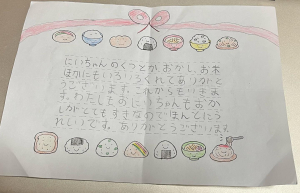 にいちゃんのくつとか、おかし、お米
ほかにもいろいろくれてありがと
うございます。これからもいきま
す。わたしものにいちゃんもおか
しがとてもすきなのでほんとにう
れしいです。ありがとうございます